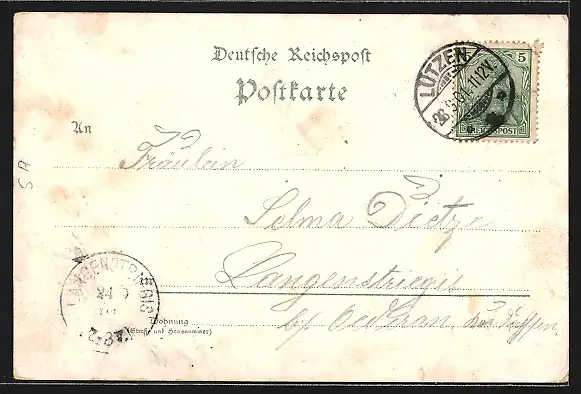 Deutsche Reichspost
Postkarte
LÜTZEN
5
11-12V.
REICHSPOST
An
Fräulein
Selma Dietze
Langenstriegis
b/ Oederan
LANGENSTRIEGIS
24 5
Wohnung
(Straße und Hausnummer)